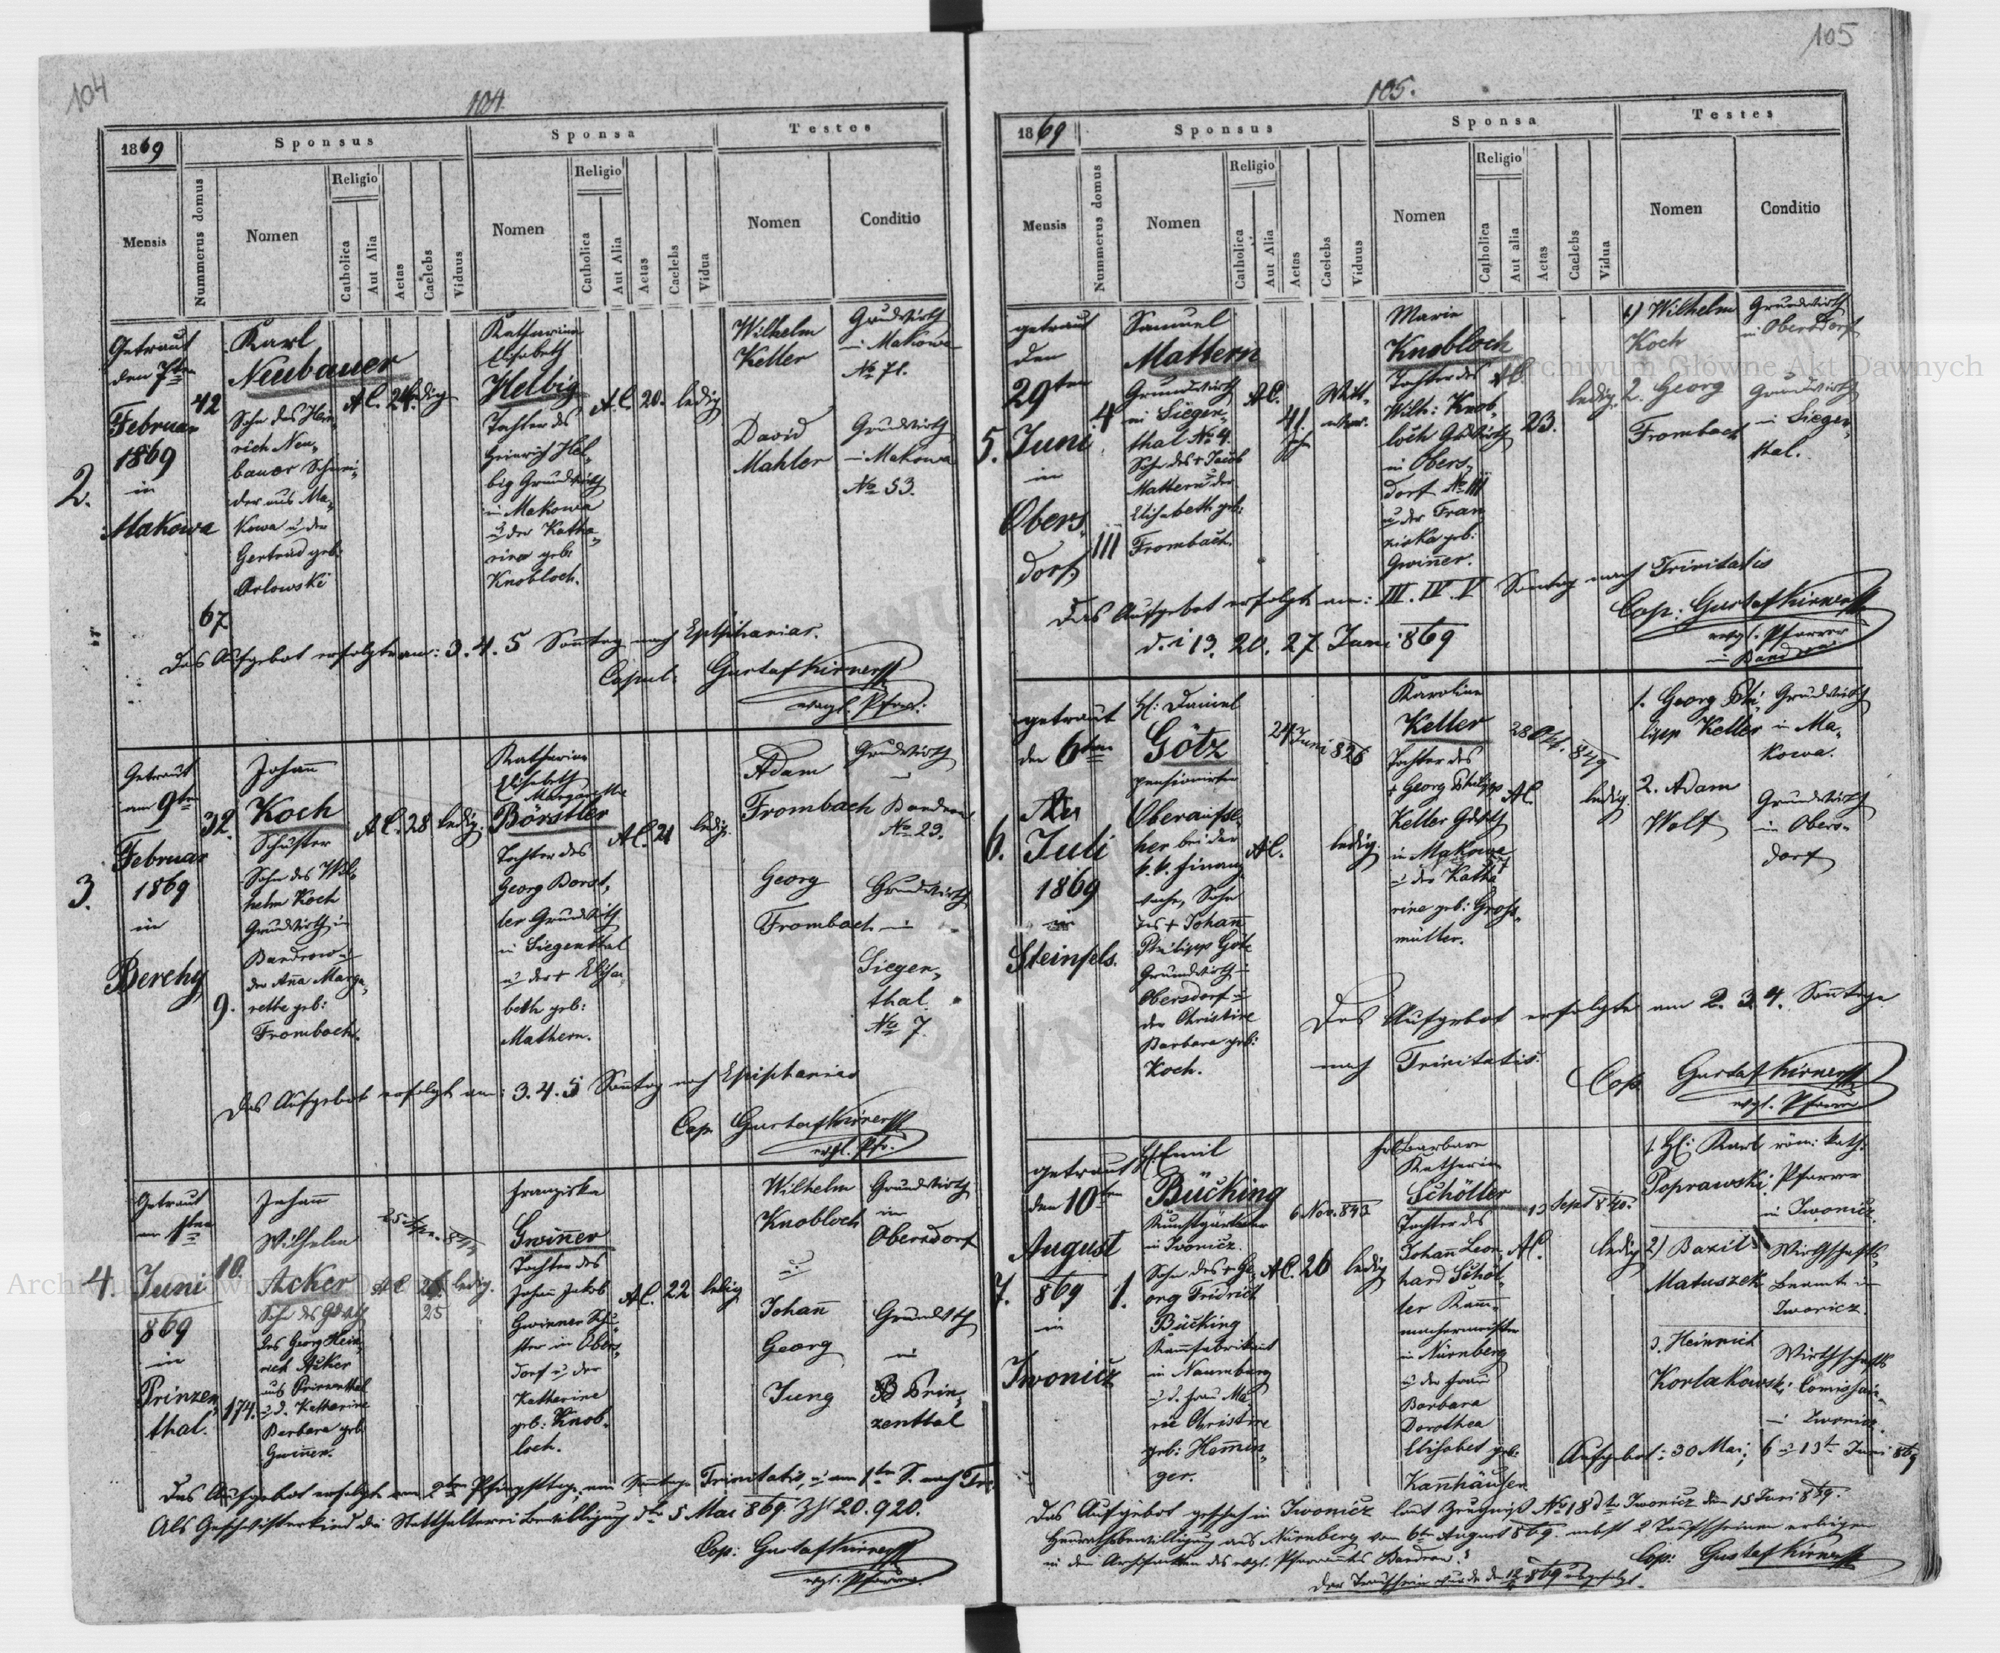 104
104.
1869
Sponsus
Sponsa
Testes
Mensis
Nummerus domus
Nomen
Religio
Catholica
Aut Alia
Aetas
Caelebs
Viduus
Nomen
Religio
Catholica
Aut Alia
Aetas
Caelebs
Vidua
Nomen
Conditio
2.
Getraut
den 7ten
Februar
1869
in
Makowa
42
67
Karl
Neubauer
Sohn des Hein-
rich Neu-
bauer Schnei-
der aus Ma-
kowa u der
Gertrud geb:
Orlowski
A.C.
24.
ledig
Katharina
Elisabeth
Helbig
Tochter des
Heinrich Hel-
big Grundwirth
in Makowa
u der Katha-
rina geb:
Knobloch.
A.C.
20.
ledig
Wilhelm
Keller
Grundwirth
in Makowa
No 71.
David
Mahler
Grundwirth
in Makowa
No 53.
Das Aufgebot erfolgte am: 3. 4. 5 Sonntag nach Epiphanias.
Copul: Gustaf Kirnerst
evgl. Pfrr:
3.
Getraut
am 9ten
Februar
1869
in
Berehy
32.
9.
Johann
Koch
Schuster
Sohn des Wil-
helm Koch
Grundwirth in
Bandrow u
der Anna Marga-
retha geb:
Frombach.
A.C.
28
ledig.
Katharina
Elisabeth
Börstler
Tochter des
Georg Borst-
ler Grundwirth
in Siegenthal
u der + Elisa-
beth geb:
Mathern.
A.C.
21
ledig.
Adam
Frombach
Grundwirth
in
Bandrow
No 23.
Georg
Frombach
Grundwirth
in
Siegen-
thal
No 7.
Das Aufgebot erfolgte am: 3. 4. 5 Sonntag nach Epiphanias
Cop. Gustaf Kirnerst
evgl. Pfr:
4.
Getraut
am 1ten
Juni
869
in
Prinzen-
thal.
10.
174.
Johann
Wilhelm
Acker
des Georg Hein-
rich Acker
aus Prinzenthal
u d. Katharine
Barbara geb:
Gwinner.
A.C.
25
ledig.
Franziska
Gwinner
Tochter des
Johann Jakob
Gwinner Schu-
ster in Obers-
dorf u der
Katharine
geb: Knob-
loch.
A.C.
22
ledig
Wilhelm
Knobloch
Grundwirth
in
Obersdorf
Johann
Georg
Jung
Grundwth
in
Prin-
zenthal
Das Aufgebot erfolgte am 2ten Pfingsttage, am Sonntage Trinitatis, u am 1ten S. nach Tri.
Als Geschwisterkind die Statthalterei Bewilligung dto 5 Mai 869 Zhl 20.920.
Cop: Gustaf Kirnerst
evgl. Pfarrer.
105
105.
1869
Sponsus
Sponsa
Testes
Mensis
Nummerus domus
Nomen
Religio
Catholica
Aut Alia
Aetas
Caelebs
Viduus
Nomen
Religio
Catholica
Aut alia
Aetas
Caelebs
Vidua
Nomen
Conditio
5.
getraut
den
29ten
Juni
in
Obers-
dorf.
4
111
Samuel
Mattern
Grundwirth
in Siegen-
thal No 4.
Sohn des + Jacob
Mattern u der
Elisabeth geb:
Frombach.
A.C.
41.
Witt-
wer.
Marie
Knobloch
Tochter des
Wilh: Knob-
loch Grdwirth
in Obers-
dorf No 111
u der Fran-
ziska geb:
Gwinner.
A.C.
23.
ledig.
1) Wilhelm
Koch
Grundwirth
in Obersdorf
2. Georg
Frombach
Grundwirth
in Siegen-
thal.
Das Aufgebot erfolgte am: III. IV. V Sonntag nach Trinitatis
d. i 13. 20. 27 Juni 869
Cop: Gustaf Kirnerst
evgl. Pfarrer
in Bandrow
6.
getraut
den 6ten
Juli
1869
in
Steinfels.
H: Daniel
Götz
pensionirter
Oberaufse-
her bei der
k.k. Finanz-
wache, Sohn
des + Johann
Philipp Götz
Grundwirth in
Obersdorf u
der Christine
Barbara geb:
Koch.
24 Juni 826
A.C.
ledig.
Karoline
Keller
Tochter des
+ Georg Philipp
Keller Grdwth
in Makowa
u der Katha-
rine geb: Gross-
müller.
A.C.
849
ledig.
1. Georg Phi-
lipp Keller
Grundwirth
in Ma-
kowa.
2. Adam
Wolf
Grundwirth
in Obers-
dorf
Das Aufgebot erfolgte am 2. 3. 4. Sonntage
nach Trinitatis.
Cop. Gustaf Kirnerst
evgl. Pfarrer
7.
getraut
den 10ten
August
869
in
Iwonicz
1.
H: Emil
Bücking
Kunstgärtner
in Iwonicz.
Sohn des + Ge-
org Fridrich
Bücking
Kammfabrikant
in Naumburg
u d. Frau Ma-
rie Christine
geb: Hemin-
ger.
6 Nov. 843
A.C.
26
ledig
Barbara
Katharin
Schöller
Tochter des
Johann Leon-
hard Schöl-
ler Kamm-
machermeister
in Nürnberg
u der Frau
Barbara
Dorothea
Elisabet geb.
Kannhäuser
13 Sept 840.
A.C.
ledig
1. H: Karl
Poprawski
röm: kath.
Pfarrer
in Iwonicz.
2) Bazil
Matuszek
Wirthschafts-
Beamte in
Iwonicz.
3. Heinrich
Korlakowski
Wirthschafts
Comissair
in Iwonicz
Aufgebot: 30 Mai; 6 u 13ten Juni 869
Das Aufgebot geschah in Iwonicz laut Zeugniß No 18 dto Iwonicz den 15 Juni 869.
Heurathsbewilligung aus Nürnberg vom 6ten August 869. nebst 2 Taufscheinen erliegen
in den Archivakten des evgl. Pfarramtes Bandrow.
Cop: Gustaf Kirnerst
Archiwum Główne Akt Dawnych